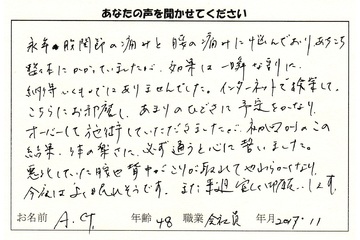 あなたの声を聞かせてください
永年、股関節の痛みと腰の痛みに悩んでおりあちこち
整体にかかっていましたが、効果は一時な割に
納得いくものではありませんでした。インターネットで検索して、
こちらにお邪魔し、あまりのひどさに予定をかなり
オーバーして施術していただきましたが、初回からこの
結果、体の楽さに、必ず通うと心に誓いました。
悪化していた腰や背中がこりが取れてやわらかくなり、
今夜はよく眠れそうです。また来週宜しく御願いします。
お名前 A. 年齢 48 職業 会社員 年月 2017.11